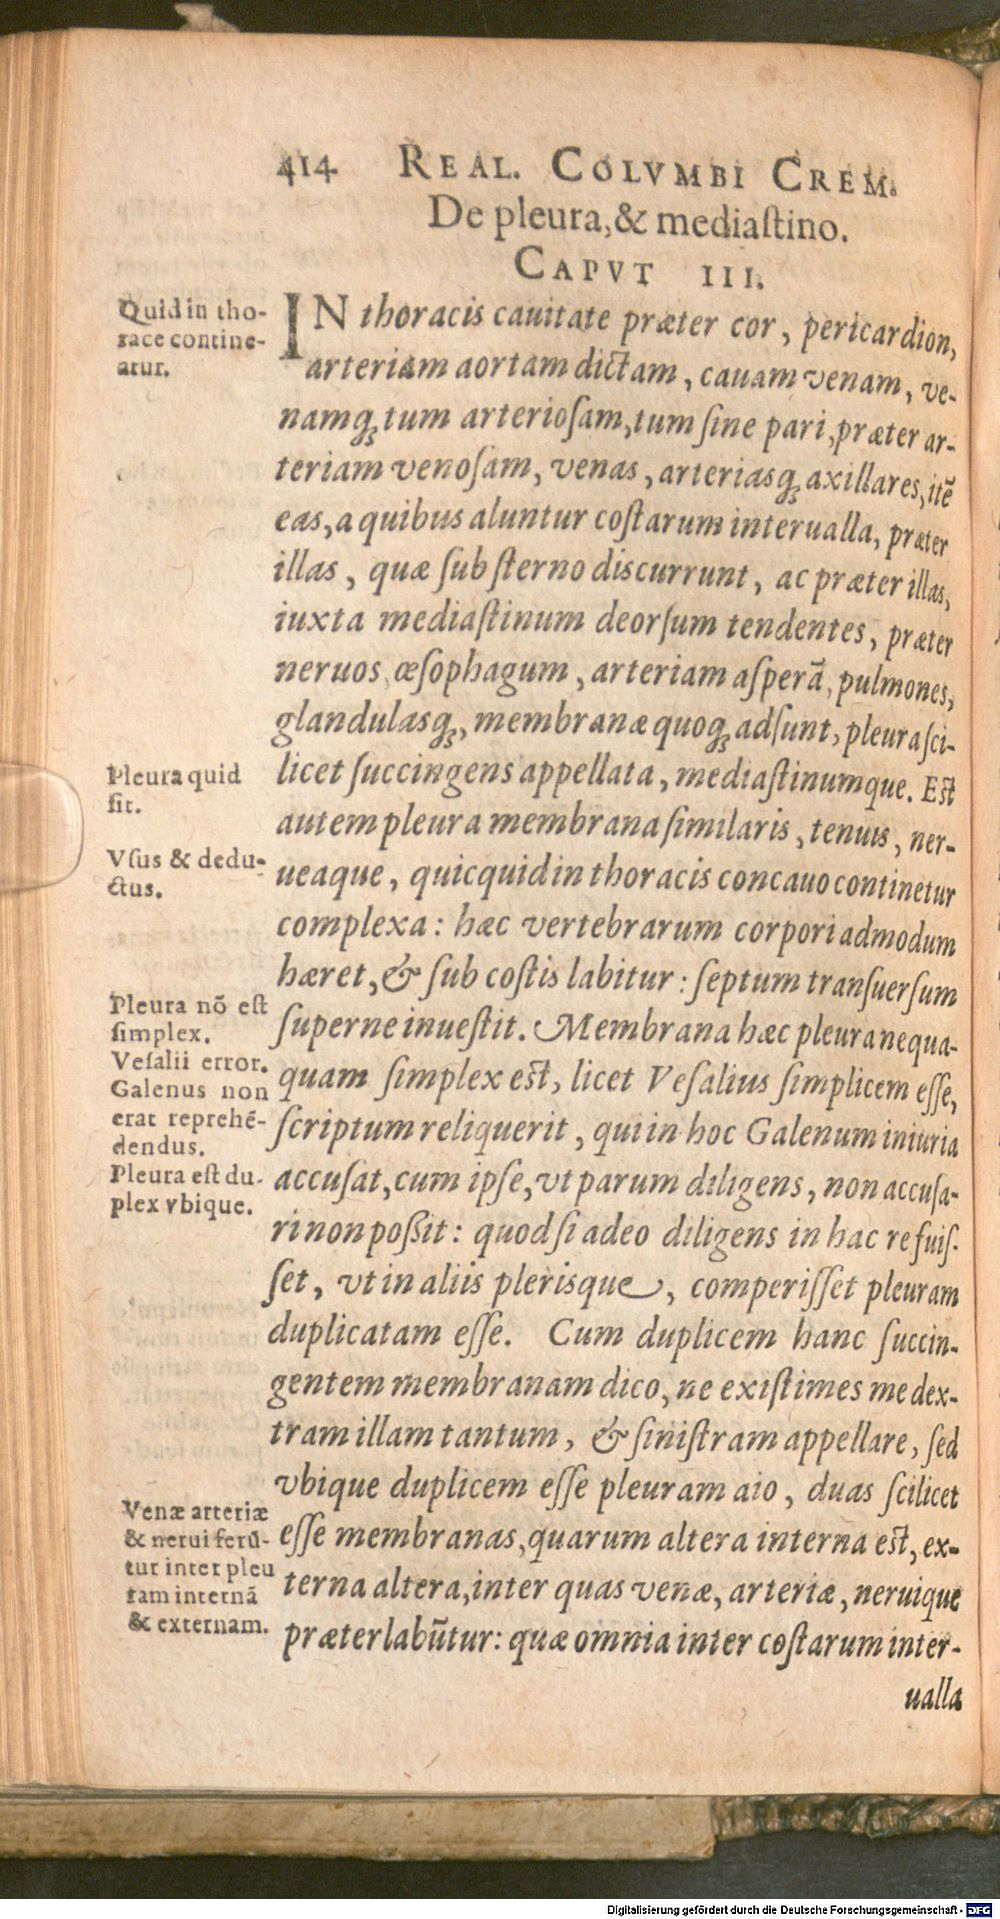 414 REAL. COLVMBI CREM.
De pleura, & mediaſtino.
CAPVT III.
Quid in tho-
race contine-
atur.
IN thoracis cauitate præter cor, pericardion,
arteriam aortam dictam, cauam venam, ve-
namq́ʒ tum arterioſam, tum ſine pari, præter ar-
teriam venoſam, venas, arteriasq́ʒ axillares, itẽ
eas, a quibus aluntur coſtarum interualla, præter
illas, quæ ſub ſterno discurrunt, ac præter illas,
iuxta mediaſtinum deorſum tendentes, præter
neruos œſophagum, arteriam aſperã, pulmones,
glandulasq́ʒ, membranæ quoq́ʒ adſunt, pleura ſci-
Pleura quid
ſit.
licet ſuccingens appellata, mediaſtinumque. Eſt
autem pleura membrana ſimilaris, tenuis, ner-
Vſus & dedu-
ctus.
ueaque, quicquid in thoracis concauo continetur
complexa: hæc vertebrarum corpori admodum
hæret, & ſub coſtis labitur: ſeptum tranſuerſum
Pleura nõ eſt
ſimplex.
Veſalii error.
Galenus non
erat reprehẽ-
dendus.
Pleura eſt du-
plex vbique.
ſuperne inueſtit. Membrana hæc pleura nequa-
quam ſimplex eſt, licet Veſalius ſimplicem eſſe,
ſcriptum reliquerit, qui in hoc Galenum iniuria
accuſat, cum ipſe, vt parum diligens, non accuſa-
ri non poßit: quod ſi adeo diligens in hac re fuiſ-
ſet, vt in aliis plerisque, comperiſſet pleuram
duplicatam eſſe. Cum duplicem hanc ſuccin-
gentem membranam dico, ne exiſtimes me dex-
tram illam tantum, & ſiniſtram appellare, ſed
vbique duplicem eſſe pleuram aio, duas ſcilicet
Venæ arteriæ
& nerui ferũ-
tur inter pleu
ram internã
& externam.
eſſe membranas, quarum altera interna eſt, ex-
terna altera, inter quas venæ, arteriæ, neruique
præterlabũtur: quæ omnia inter coſtarum inter-
ualla
Digitalisierung gefördert durch die Deutsche Forschungsgemeinschaft - DFG